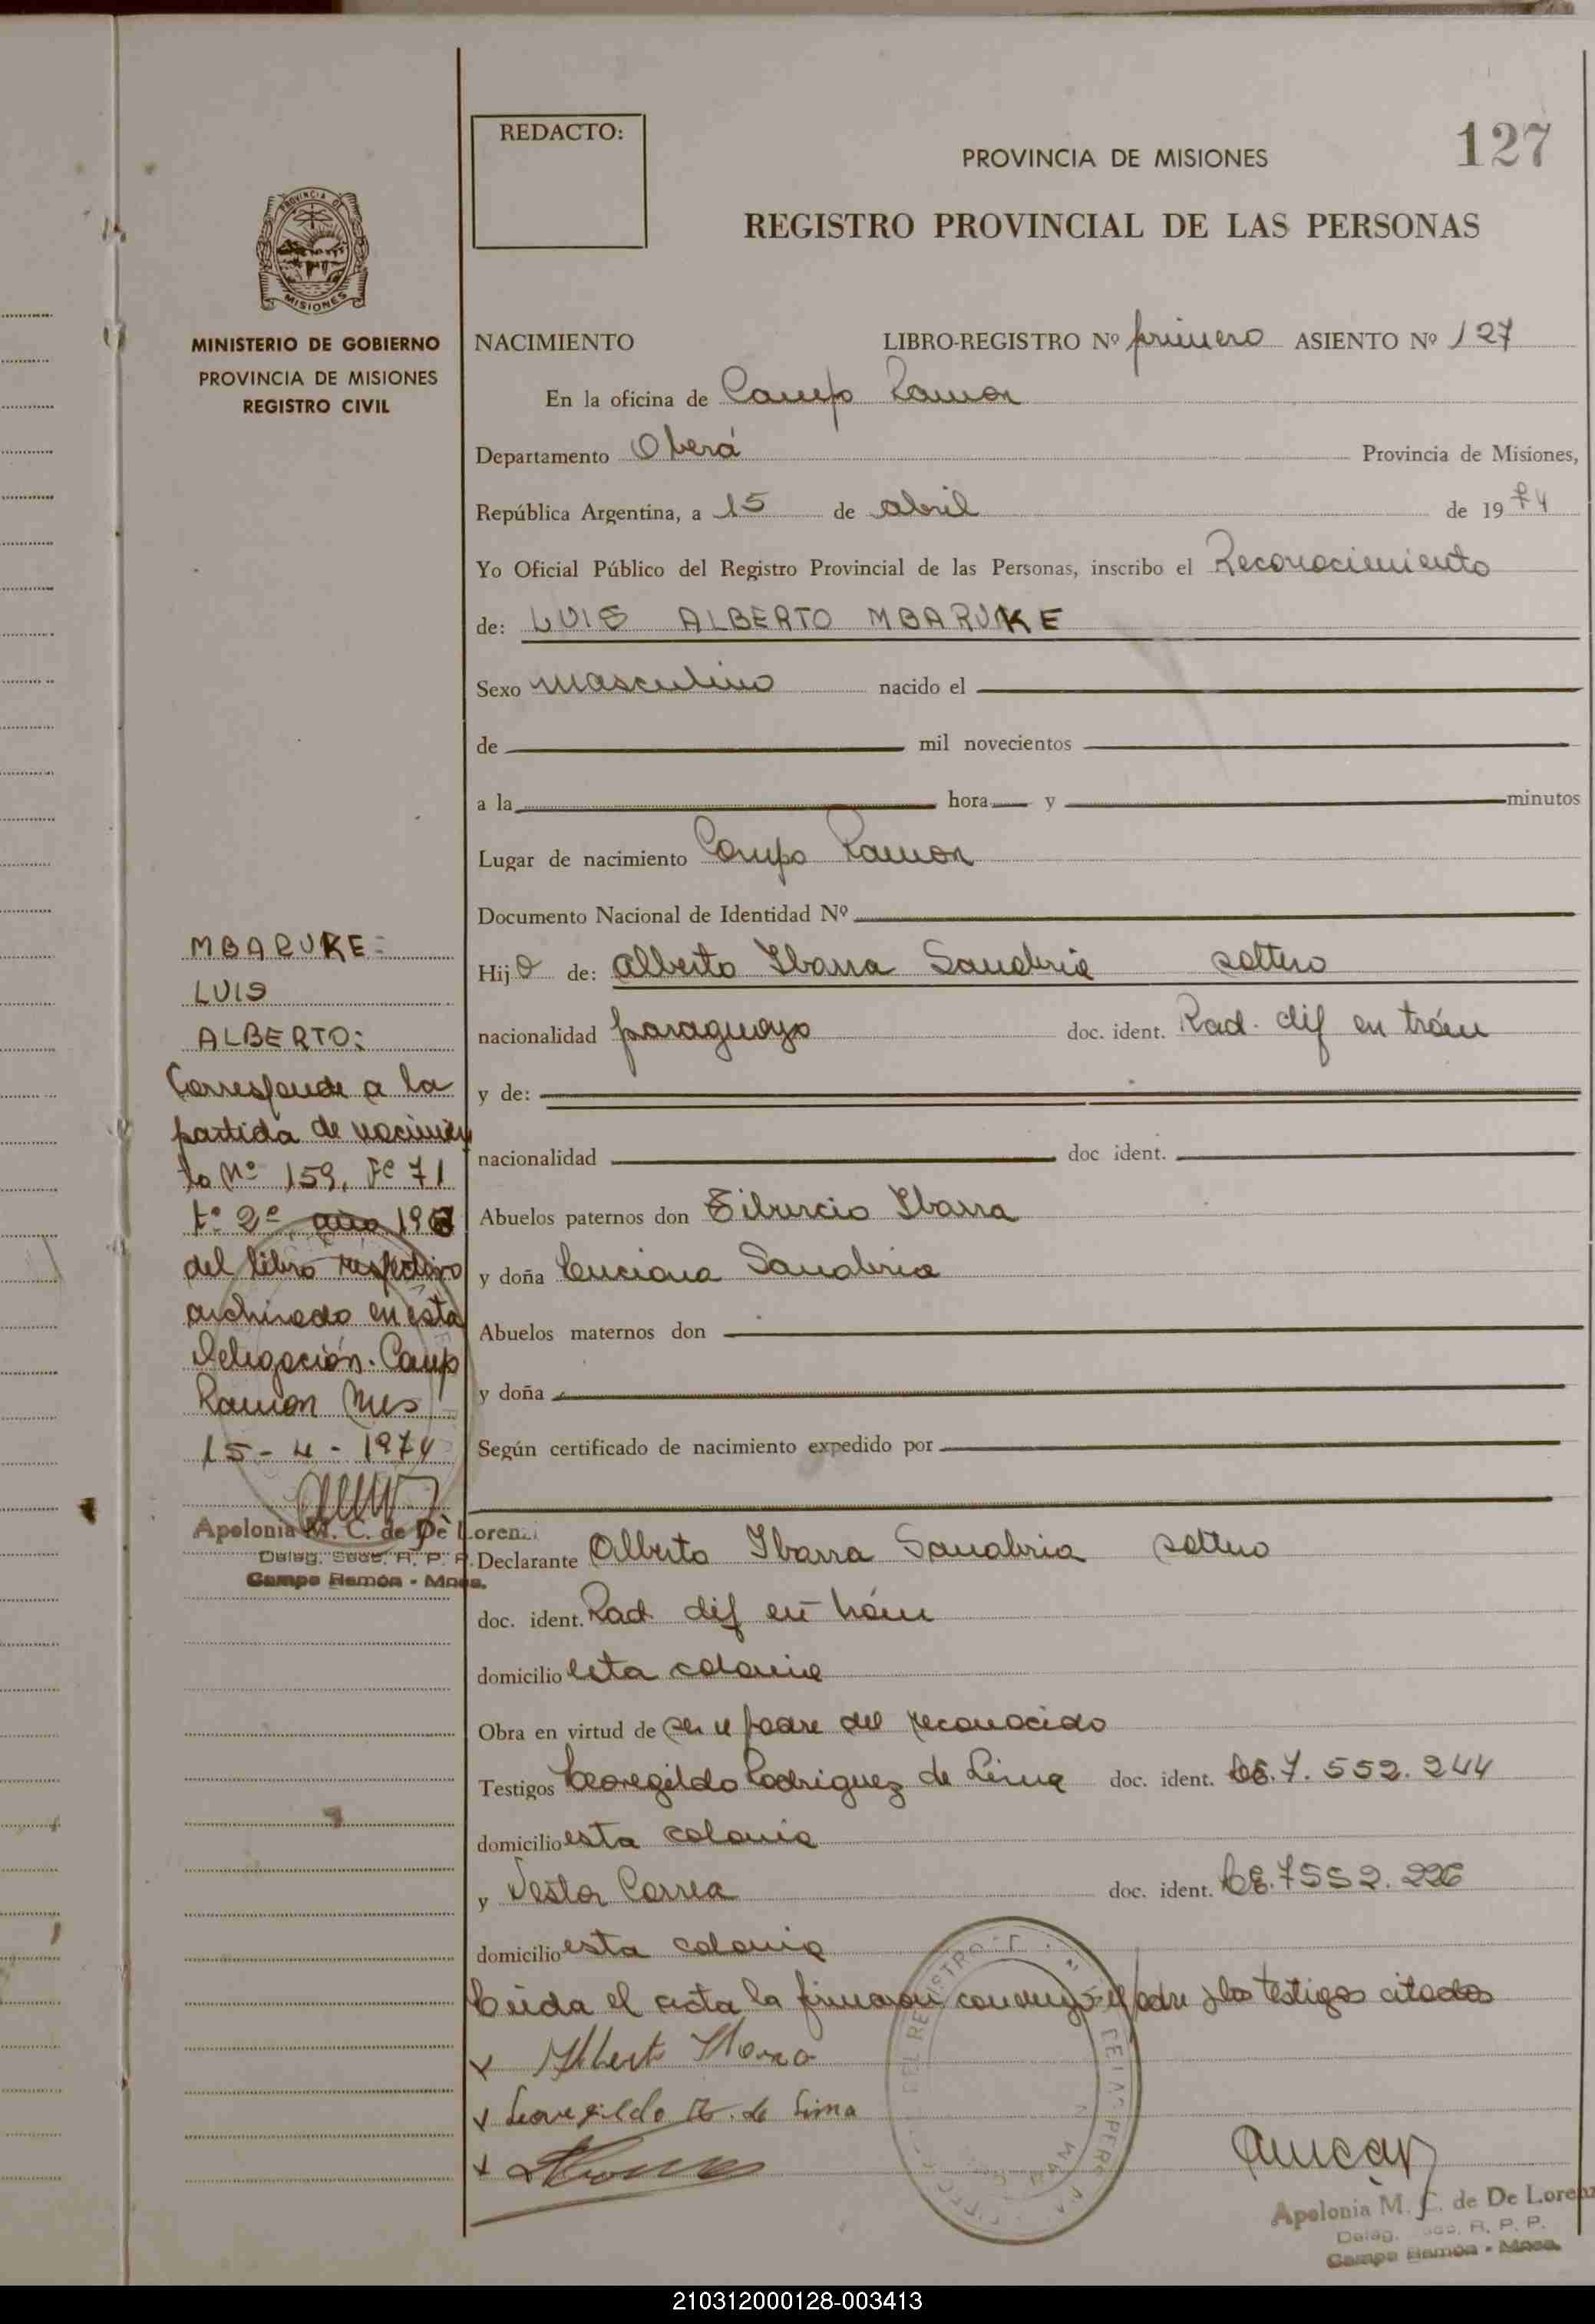 127
REDACTO:
PROVINCIA DE MISIONES
REGISTRO PROVINCIAL DE LAS PERSONAS
PROVINCIA DE
MISIONES
MINISTERIO DE GOBIERNO
PROVINCIA DE MISIONES
REGISTRO CIVIL
NACIMIENTO LIBRO-REGISTRO Nº primero ASIENTO Nº 127
En la oficina de Campo Ramon
Departamento Oberá Provincia de Misiones,
República Argentina, a 15 de abril de 1974
Yo Oficial Público del Registro Provincial de las Personas, inscribo el Reconocimiento
de: LUIS ALBERTO MBARUKE
Sexo masculino nacido el
de mil novecientos
a la hora y minutos
Lugar de nacimiento Campo Ramon
Documento Nacional de Identidad Nº
Hijo de: Alberto Ibarra Sanabria soltero
nacionalidad paraguayo doc. ident. Rad. dif en trám
y de:
nacionalidad doc ident.
Abuelos paternos don Tiburcio Ibarra
y doña Luciana Sanabria
Abuelos maternos don
y doña
Según certificado de nacimiento expedido por
Declarante Alberto Ibarra Sanabria soltero
doc. ident. Rad dif en trám
domicilio esta colonia
Obra en virtud de ser el padre del reconocido
Testigos Leovegildo Rodriguez de Lima doc. ident. 7.552.244
domicilio esta colonia
y Nestor Correa doc. ident. 7552.226
domicilio esta colonia
Leida el acta la firmaron conmigo el padre y los testigos citados
x Alberto Ibarra
x Leovegildo R. de Lima
x
Apolonia M. C. de De Lorenzi
Deleg. R. P. P.
Campo Ramón - Mnes.
MBARUKE=
LUIS
ALBERTO:
Corresponde a la
partida de nacimien
to Nº 159, Fº 71
tº 2º año 196
del libro respectivo
archivado en esta
Delegación. Camp
Ramon Mnes
15-4-1974
Apolonia M. C. de De Lorenzi
Deleg. R. P. P.
Campo Ramón - Mnes.
210312000128-003413